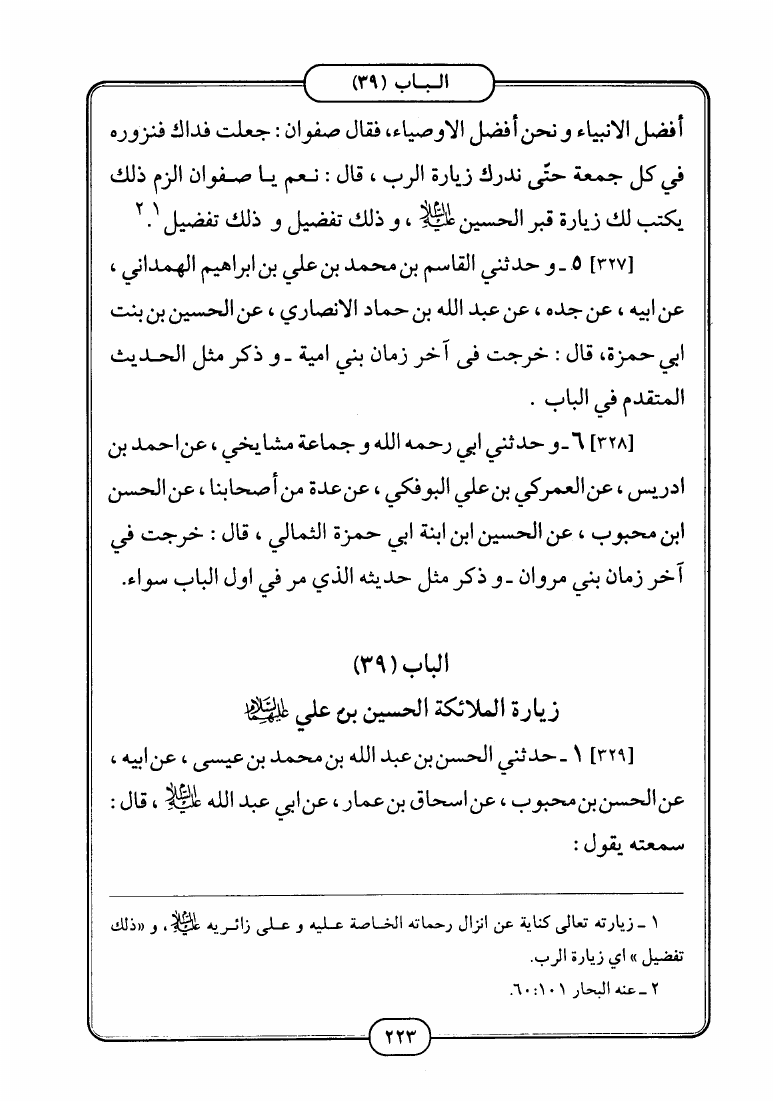 الـبـاب (٣٩)
أفضل الانبياء و نحن أفضل الاوصياء، فقال صفوان : جعلت فداك فنزوره
في كل جمعة حتّى ندرك زيارة الرب ، قال : نـعـم يـا صـفـوان الزم ذلك
يكتب لك زيارة قبر الحسين عليه السلام ، و ذلك تفضيل و ذلك تفضيل ١.٢
[٣٢٧] ٥ ـ و حدثني القاسم بن محمد بن علي بن ابراهيم الهمداني ،
عن ابيه ، عن جده ، عن عبد الله بن حماد الانصاري ، عن الحسين بن بنت
ابي حمزة، قال : خرجت فى آخر زمان بني امية ـ و ذكر مثل الحـديث
المتقدم في الباب .
[٣٢٨] ٦ـ و حدثني ابي رحمه الله و جماعة مشايخي ، عن احمد بن
ادريس ، عن العمركي بن علي البوفكي ، عن عدة من أصحابنا ، عن الحسن
ابن محبوب ، عن الحسين ابن ابنة ابي حمزة الثمالي ، قال : خرجت في
آخر زمان بني مروان ـ و ذكر مثل حديثه الذي مر في اول الباب سواء.
الباب (٣٩)
زيارة الملائكة الحسين بن علي عليهما السلام
[٣٢٩] ١ ـ حدثني الحسن بن عبد الله بن محمد بن عيسى ، عن ابيه ،
عن الحسن بن محبوب ، عن اسحاق بن عمار ، عن ابي عبد الله عليه السلام ، قال :
سمعته يقول :
١ ـ زيارته تعالى كناية عن انزال رحماته الخـاصة عـليه و عـلى زائـريه عليه السلام ، و «ذلك
تفضيل» اي زيارة الرب.
٢ ـ عنه البحار ١٠١:٦٠.
٢٢٣